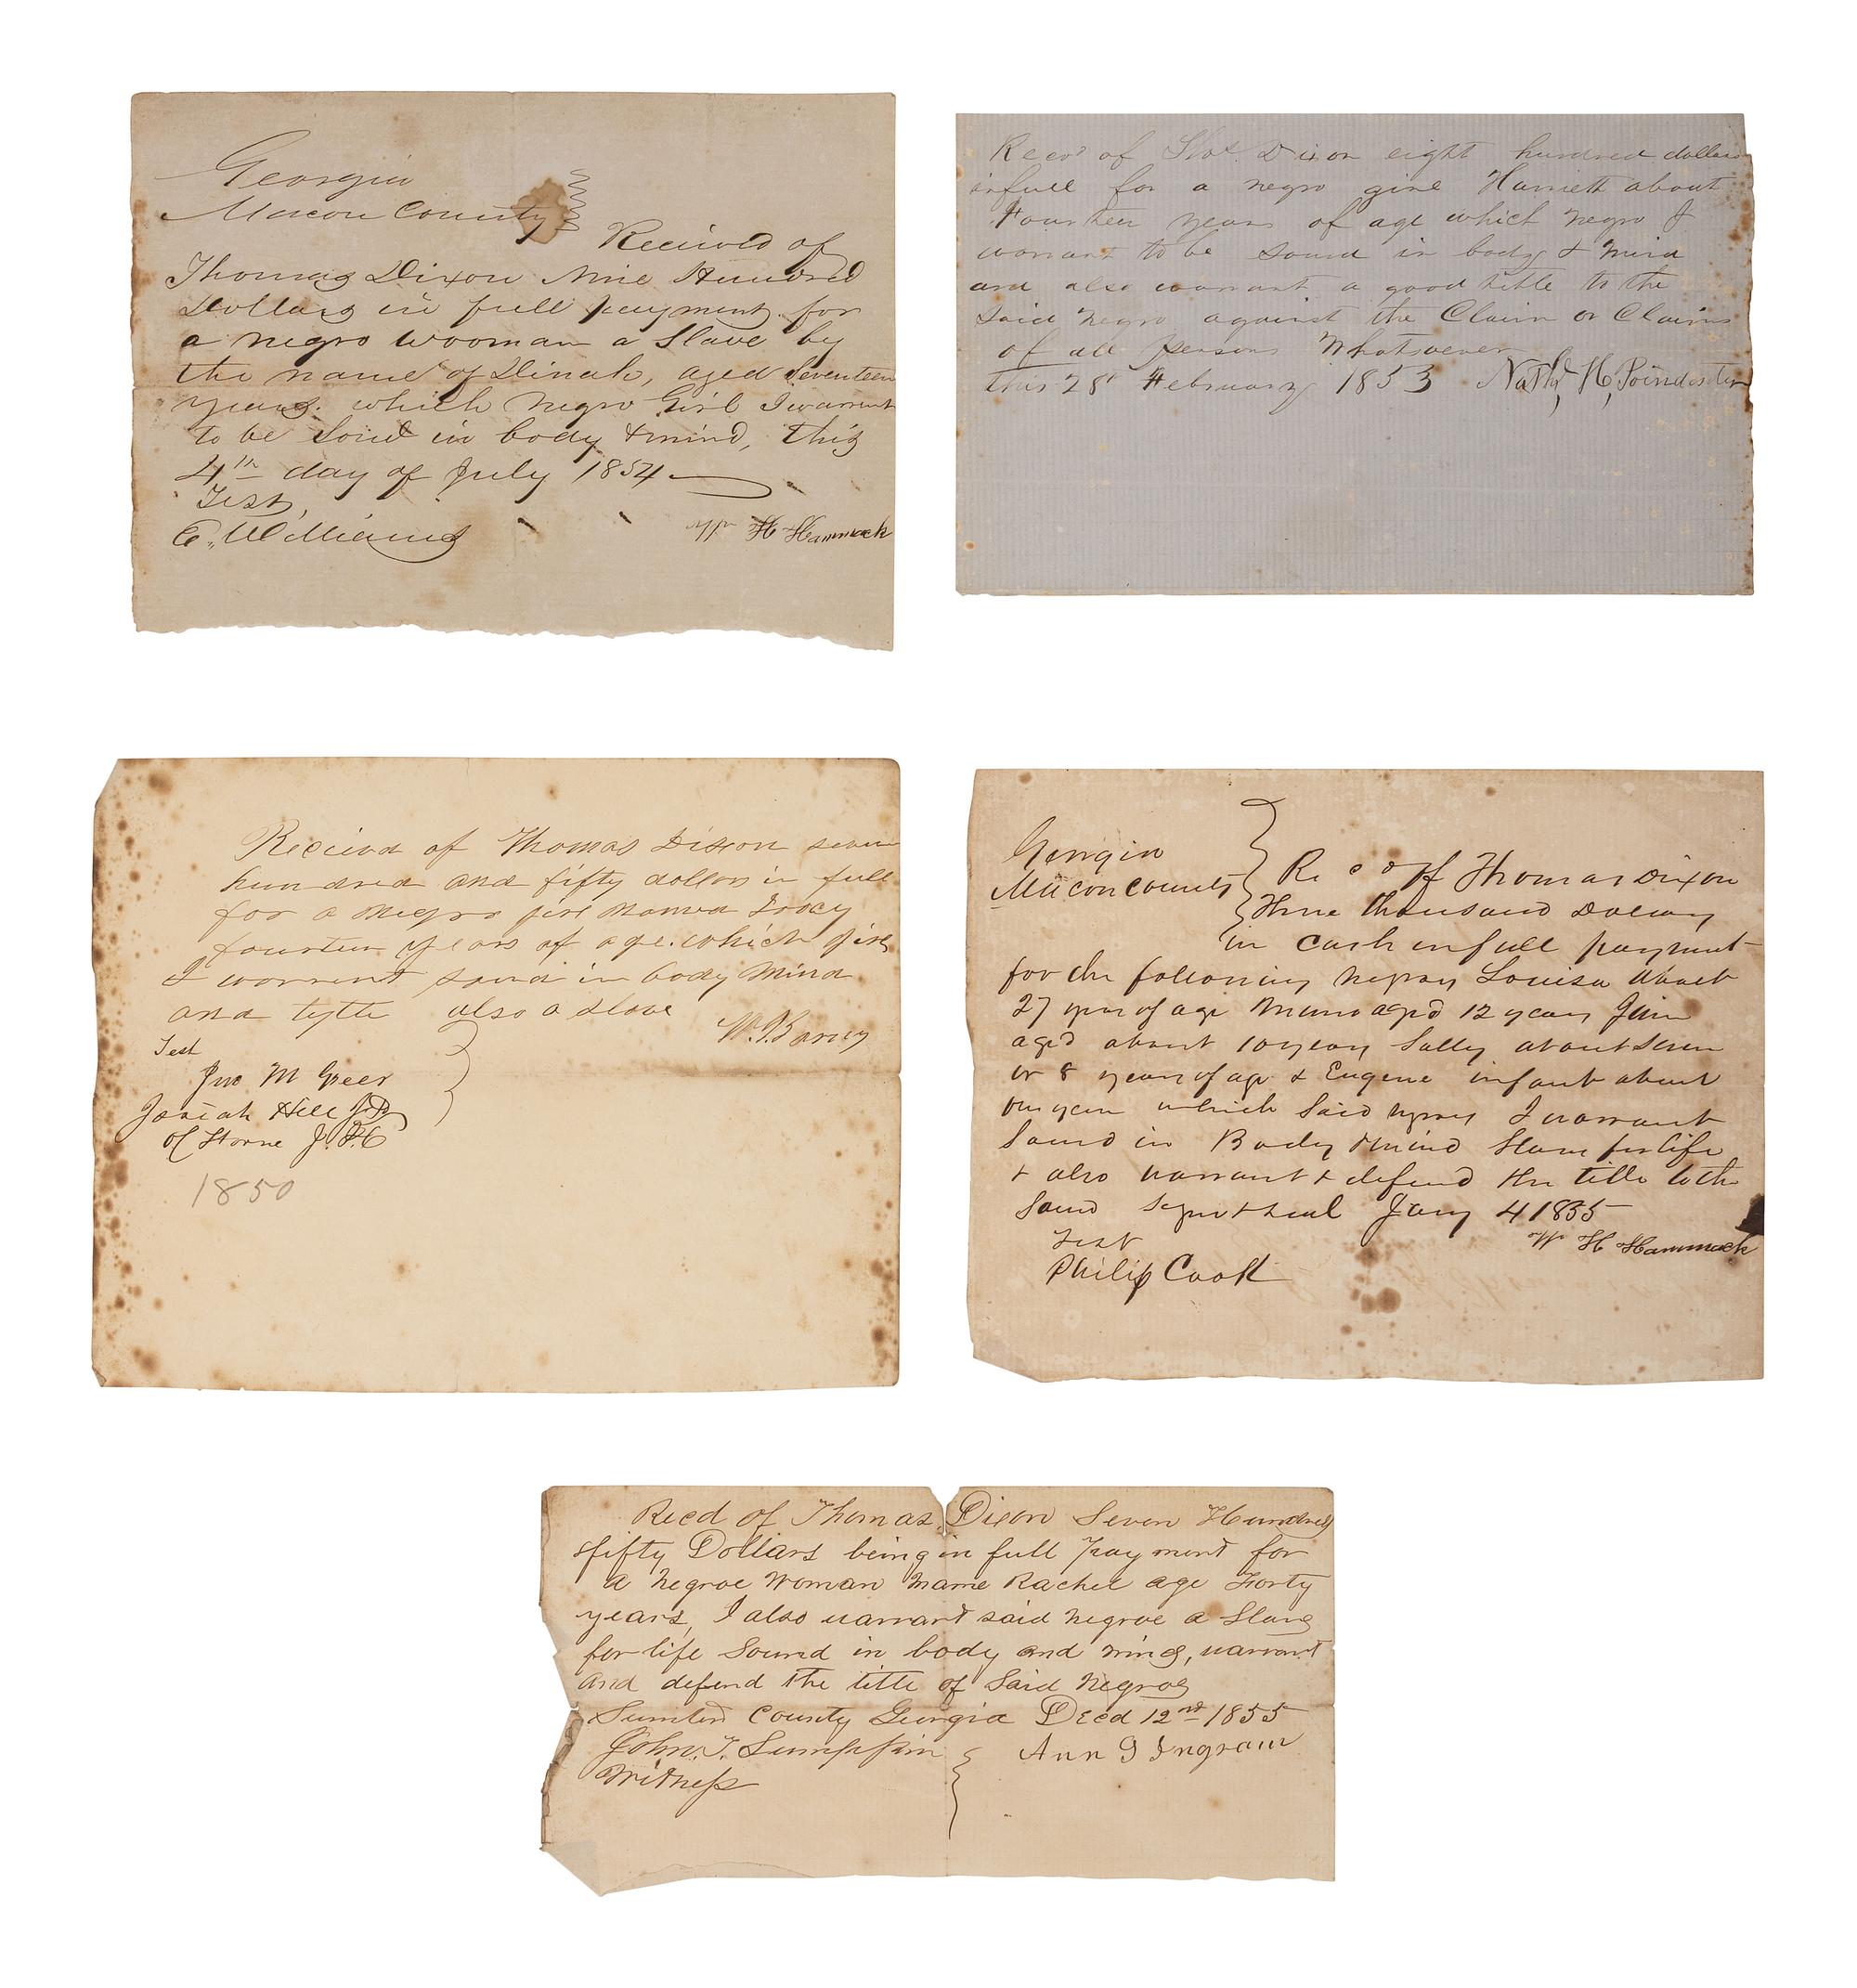 Georgia
Macon County
Recievd of
Thomas Dixon Nine Hundred
Dollars in full payment for
a negro wooman a Slave by
the name of Dinah, aged Seventeen
years. which negro Girl I warrent
to be Sound in body & mind, this
4th day of July 1854
Test,
E. Williams
Wm H Hammack
Recd of Thos. Dixon eight hundred dollars
infull for a negro girl Harriett about
Fourteen years of age which negro I
warrant to be sound in body & mind
and also warrant a good title to the
said negro against the Claim or Claims
of all persons Whatsoever
this 28t February 1853 Nathl H, Poindexter
Recievd of Thomas Dixon seven
hundred and fifty dollars in full
for a negro girl named
fourteen years of age. which girl
I warrent sound in body Mind
and tytle also a slave
Test
Jno M Greer
Josiah Hill
1850
Georgia
Macon County
Recd of Thomas Dixon
three thousand Dollars
in cash in full payment
for the following negroes Louisa about
27 years of age aged 12 years Jim
aged about 10 years Sally about seven
or 8 years of age & Eugene infant about
one year which said negroes I warrant
Sound in Body & mind Slaves for life
& also warrant & defend the title to the
Same Jany 4 1855
Test
Wm H Hammack
Philip Cook
Recd of Thomas Dixon Seven Hundred
&fifty Dollars being in full Payment for
a Negroe Woman Name Rachel age Forty
years, I also warrant said Negroe a Slave
for life Sound in body and mind, warrant
and defend the title of Said Negroe
Sumter County Georgia Decd 12nd 1855
John. T. Lumpkin
Ann G Ingram
Witness